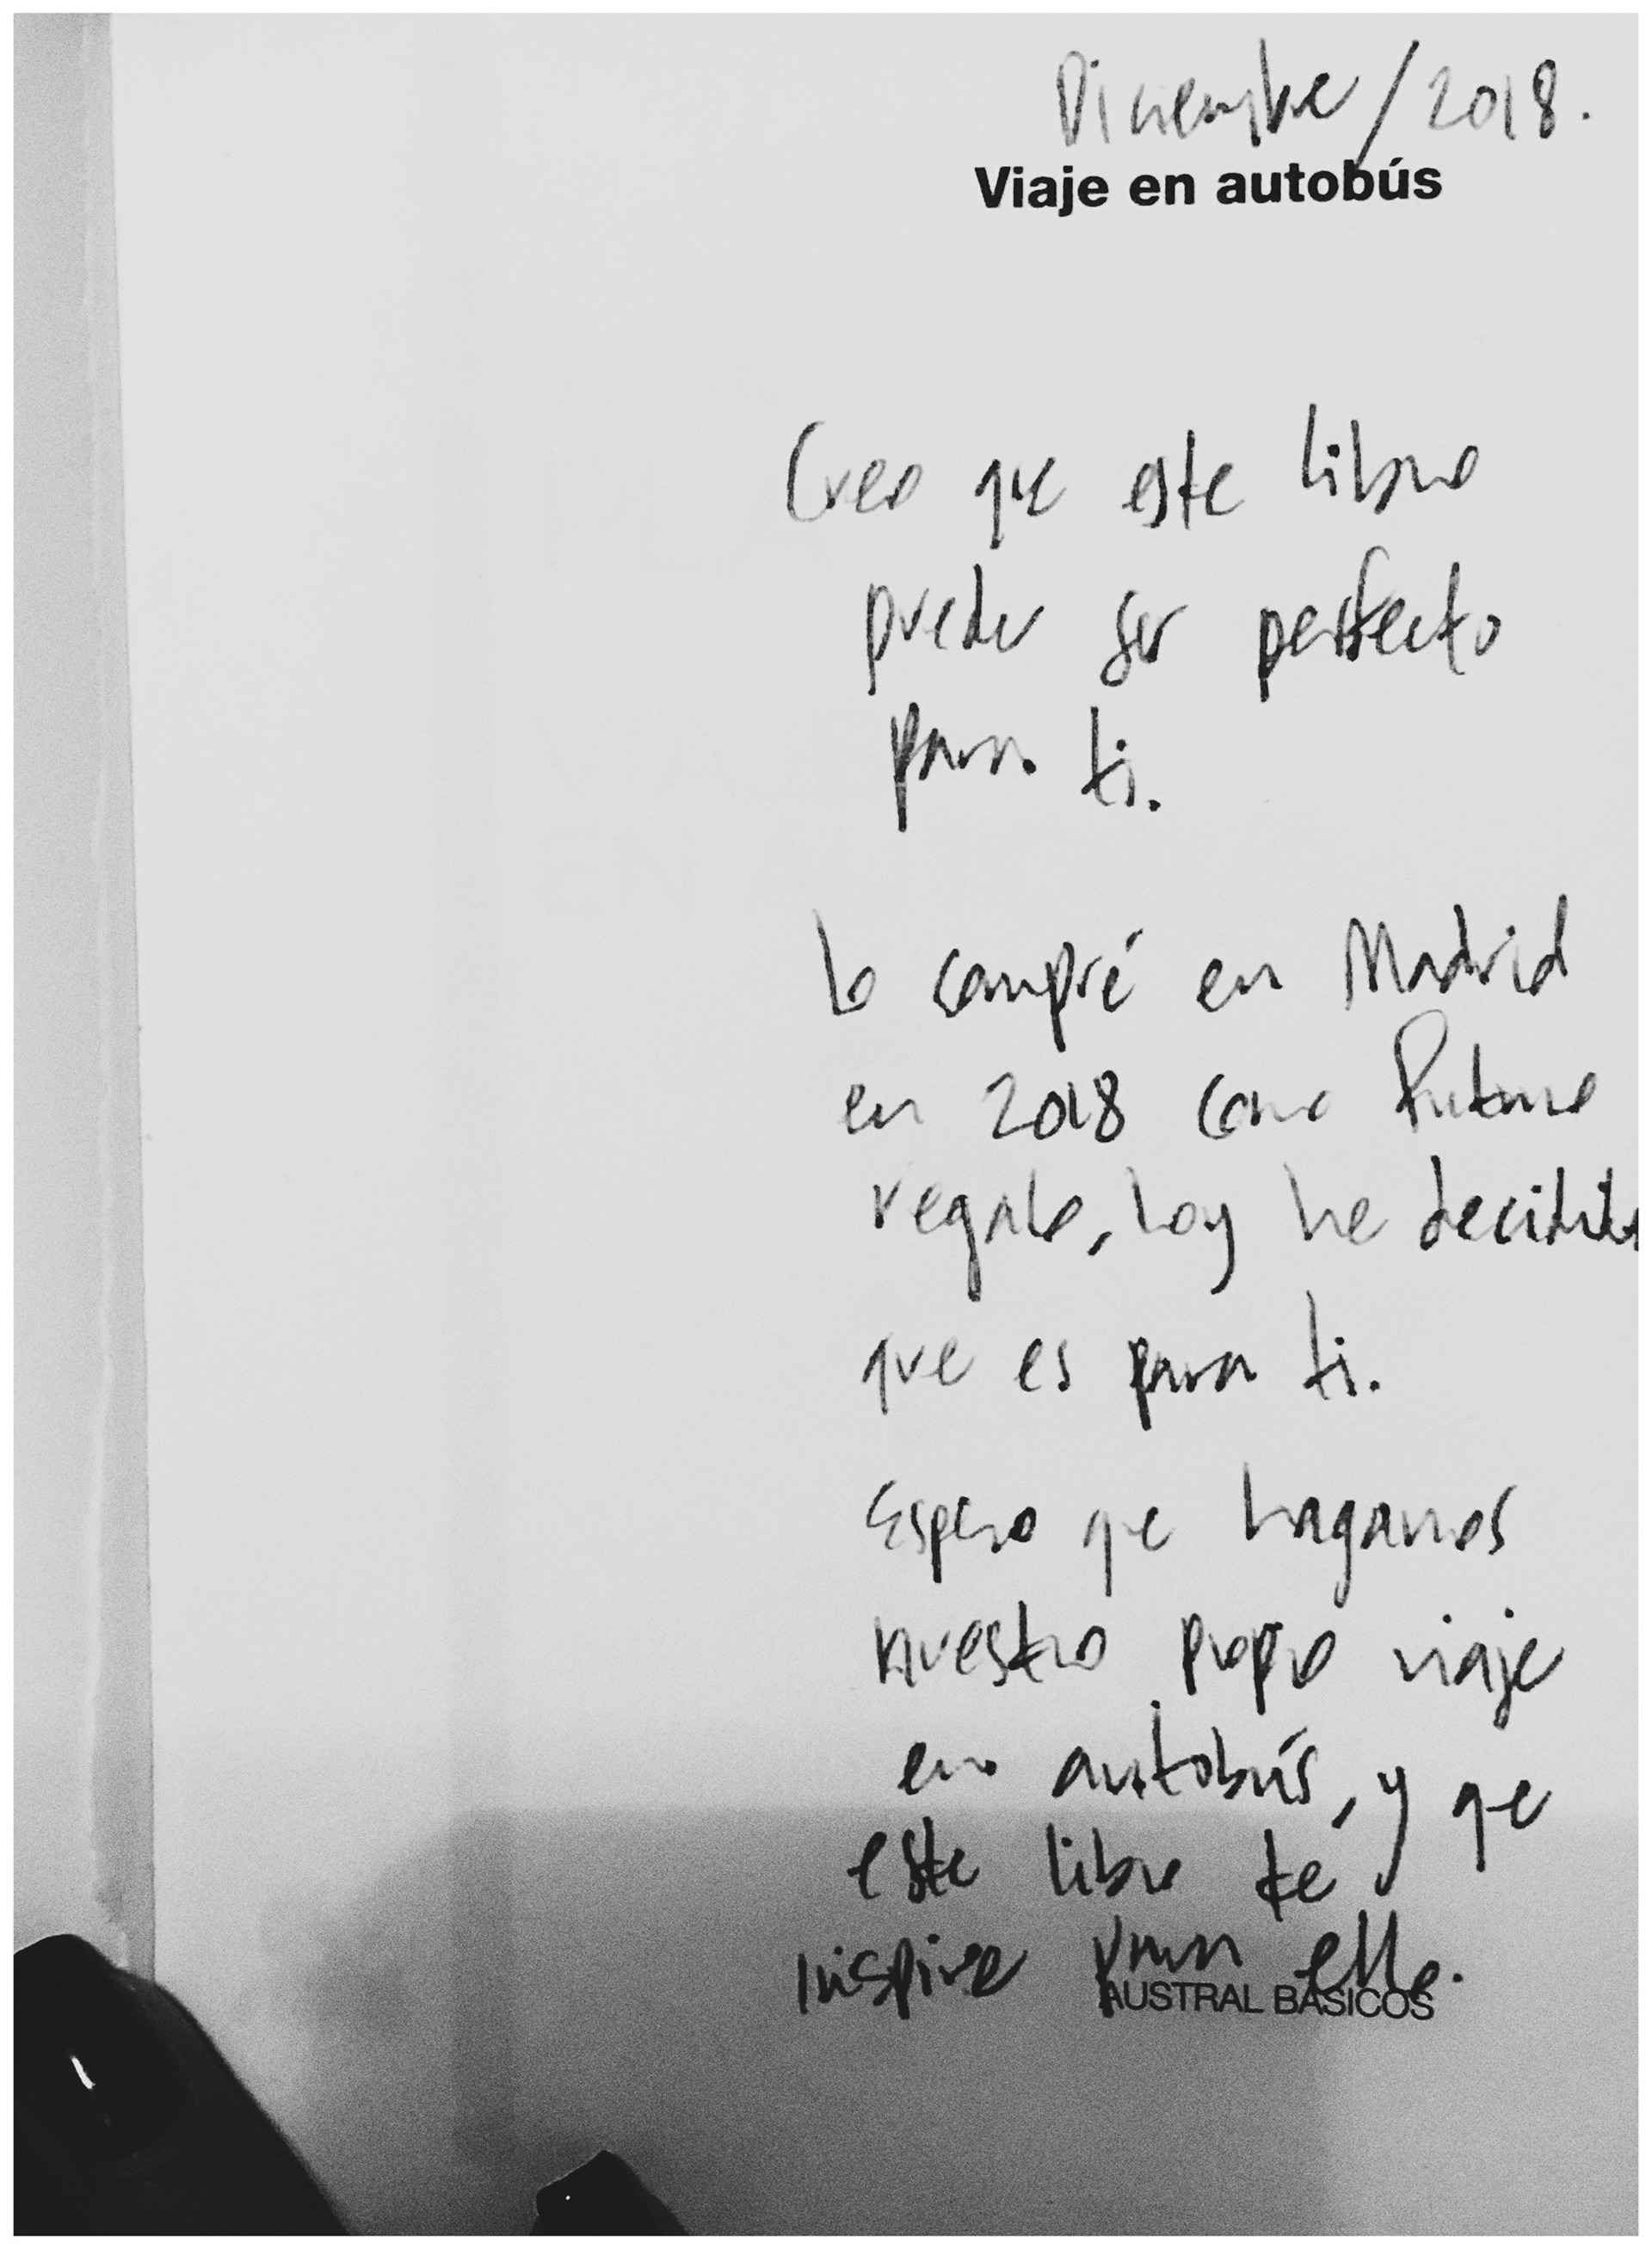 Diciembre/2018.
Viaje en autobús
Creo que este libro
puede ser perfecto
para ti.
Lo compré en Madrid
en 2018 como futuro
regalo, hoy he decidido
que es para ti.
Espero que hagamos
nuestro propio viaje
en autobús, y que
este libro te
inspire para ello.
AUSTRAL BÁSICOS